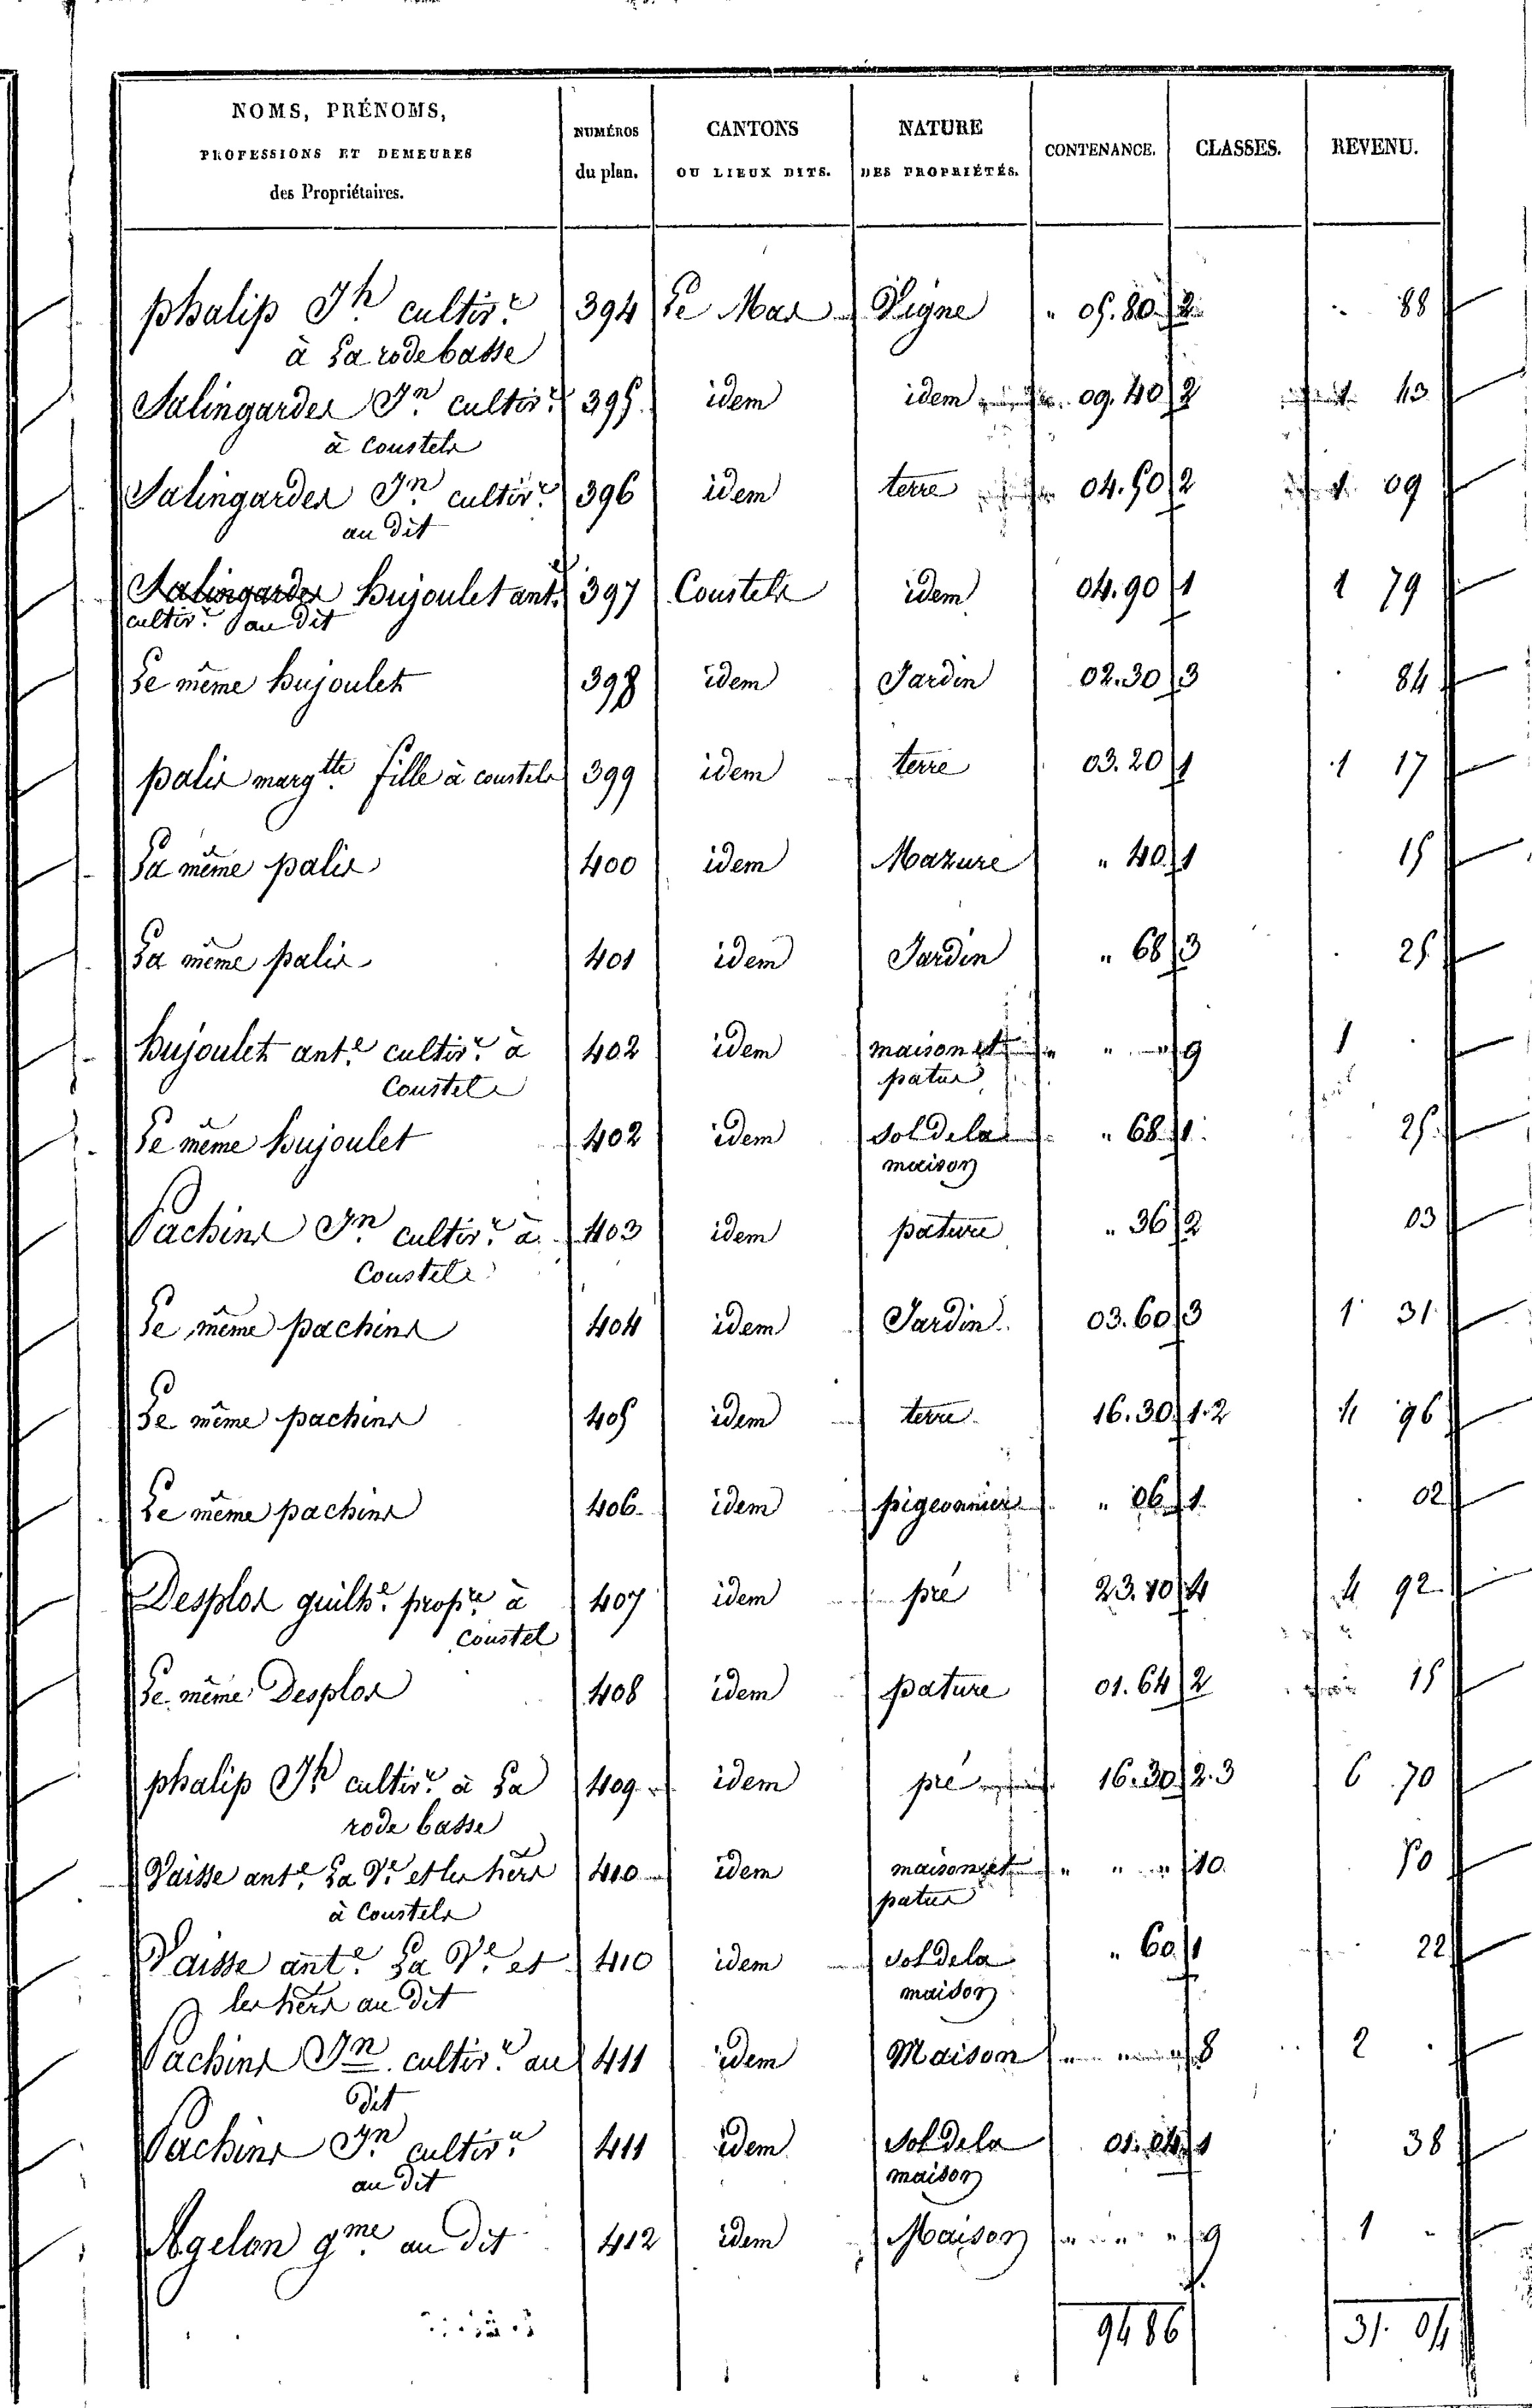 NOMS, PRÉNOMS,
PROFESSIONS ET DEMEURES
des Propriétaires.
NUMÉROS
du plan.
CANTONS
OU LIEUX DITS.
NATURE
DES PROPRIÉTÉS.
CONTENANCE.
CLASSES.
REVENU.
phalip Jh cultivr 394 Le Mas Vigne " 05.80 2 88
à La rode basse
Salingardes Jn cultivr 395 idem idem 09.40 2 1 43
à Coustels
Salingardes Jn cultivr 396 idem terre 04.50 2 1 09
au dit
Salingardes bujoulet ante 397 Coustels idem 04.90 1 1 79
cultivr au dit
Le même bujoulet 398 idem Jardin 02.30 3 84
palis margtte fille à coustels 399 idem terre 03.20 1 1 17
La même palis 400 idem Mazure " 40 1 15
La même palis 401 idem Jardin " 68 3 25
bujoulet ante cultivr à 402 idem maison et " " 9 1
Coustels patus
Le même bujoulet 402 idem sol de la " 68 1 25
maison
Pachins Jn cultivr à 403 idem pature " 36 2 03
Coustels
Le même pachins 404 idem Jardin 03.60 3 1 31
Le même pachins 405 idem terre 16.30 1.2 4 96
Le même pachins 406 idem pigeonnier " 06 1 02
Desplos guilhe propre à 407 idem pré 23.10 4 4 92
Coustel
Le même Desplos 408 idem pature 01.64 2 15
phalip Jh cultivr à La 409 idem pré 16.30 2.3 6 70
rode basse
Vaisse ante La Ve et les hers 410 idem maison et " " " 10 50
à Coustels patus
Vaisse ante La Ve et 410 idem sol de la " 60 1 22
les hers au dit maison
Pachins Jn cultivr au 411 idem Maison " " 8 2
dit
Pachins Jn cultivr 411 idem sol de la 01.04 1 38
au dit maison
Agelon gme au dit 412 idem Maison " " " 9 1
94 86 31. 04